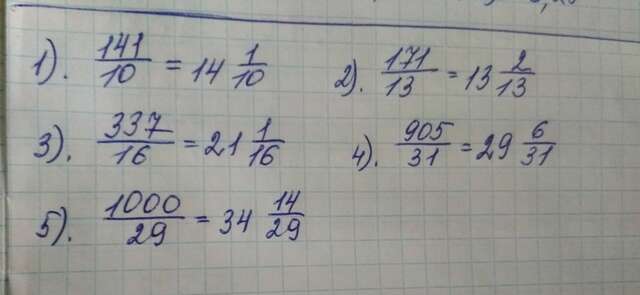 1). 141/10 = 14 1/10 2). 171/13 = 13 2/13
3). 337/16 = 21 1/16 4). 905/31 = 29 6/31
5). 1000/29 = 34 14/29